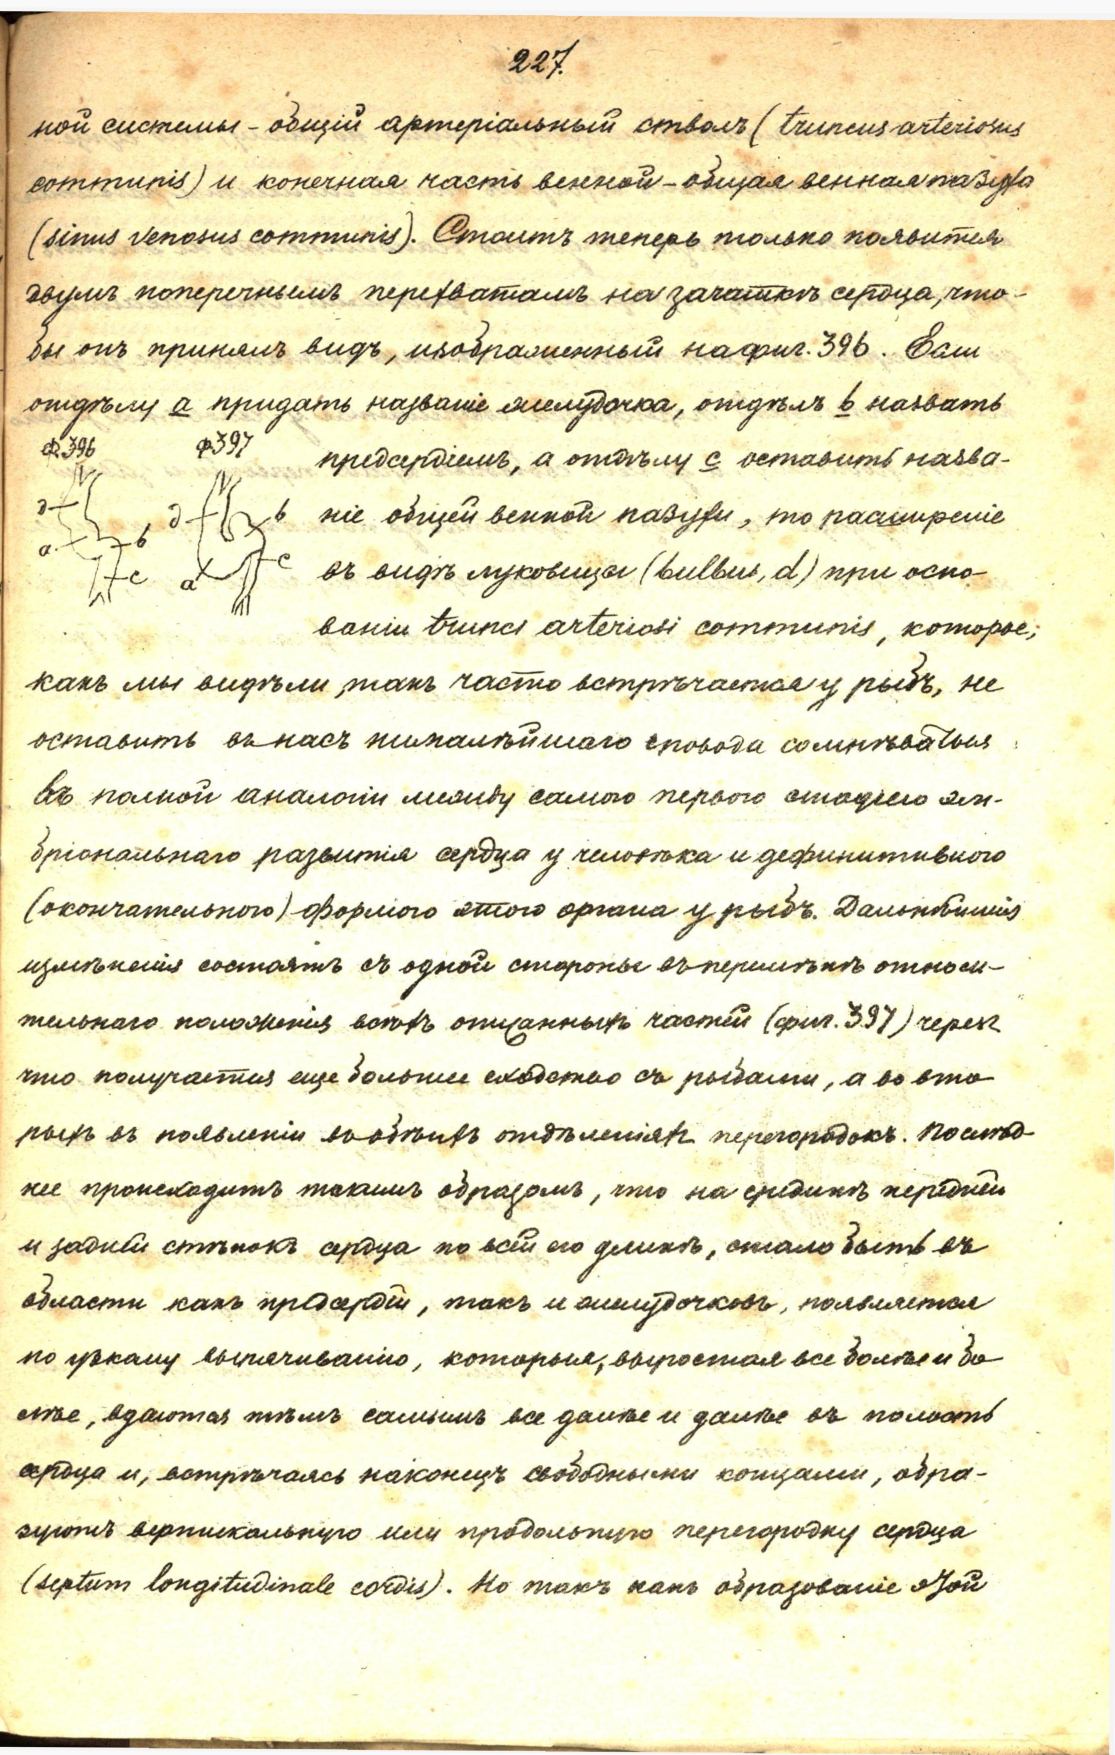 227.
ной системы – общій артеріальный стволъ (truncus arteriosus
communis) и конечная часть венной – общая венная пазуха
(sinus venosus communis). Стоитъ теперь только появится
двумъ поперечнымъ перехватамъ на зачаткѣ сердца, что-
бы онъ принялъ видъ, изображенный на фиг. 396. Если
отдѣлу a придать названіе желудочка, отдѣлъ b назвать
Ф.396 Ф397
предсердіемъ, а отдѣлу c оставить назва-
ніе общей венной пазухи, то расширеніе
въ видѣ луковицы (bulbus, d) при осно-
ваніи trunci arteriosi communis, которое,
д a b c д b c a
какъ мы видѣли, такъ часто встрѣчается у рыбъ, не
оставитъ въ насъ нималѣйшаго повода сомнѣваться
въ полной аналогіи между самою первою стадіею эм-
бріональнаго развитія сердца у человѣка и дефинитивною
(окончательною) формою этого органа у рыбъ. Дальнѣйшія
измѣненія состоятъ съ одной стороны въ перемѣнѣ относи-
тельнаго положенія всѣхъ описанныхъ частей (фиг. 397) черезъ
что получается еще большее сходство съ рыбами, а во вто-
рыхъ въ появленіи въ обѣихъ отдѣленіяхъ перегородокъ. Послѣд-
нее происходитъ такимъ образомъ, что на срединѣ передней
и задней стѣнокъ сердца по всей его длинѣ, стало быть въ
области какъ предсердій, такъ и желудочковъ, появляется
по узкому выпячиванію, которыя, выростая все болѣе и бо-
лѣе, вдаются тѣмъ самымъ все далѣе и далѣе въ полость
сердца и, встрѣчаясь наконецъ свободными концами, обра-
зуютъ вертикальную или продольную перегородку сердца
(septum longitudinale cordis). Но такъ какъ образованіе этой